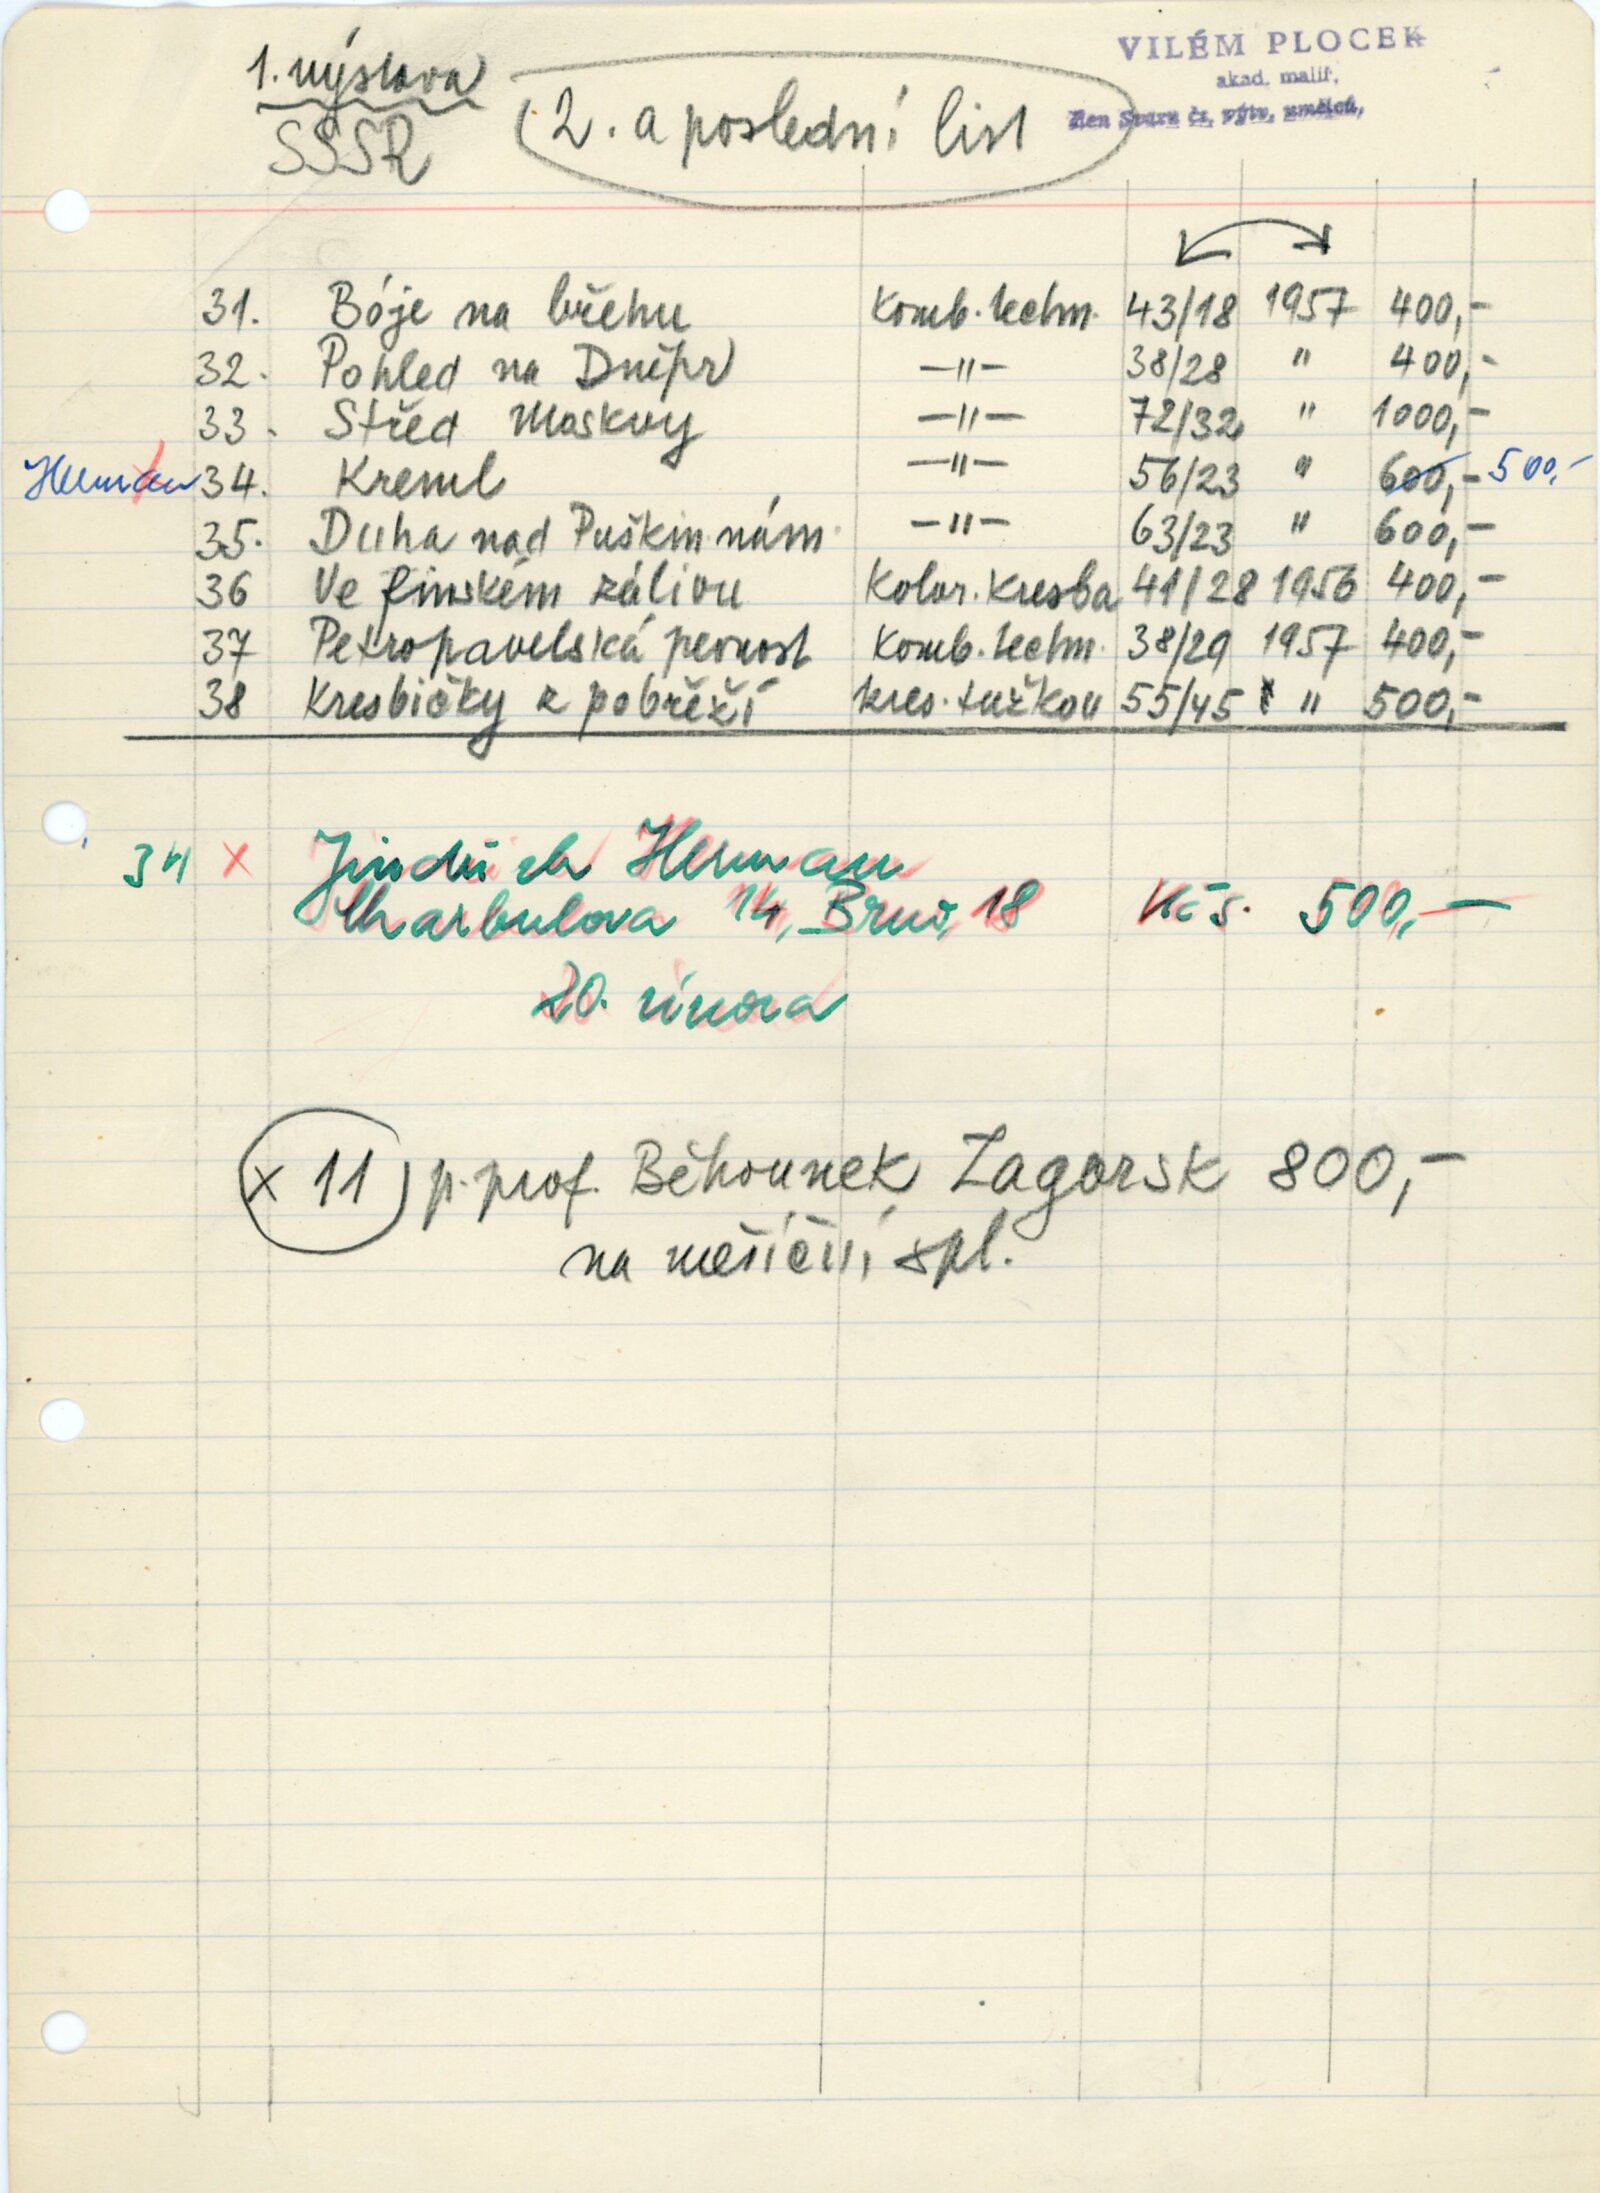 VILÉM PLOCEK
akad. malíř,
člen Svazu čs. výtv. umělců,
1. výstava
SSSR
2. a poslední list
31. Bóje na břehu Komb. techn. 43/18 1957 400,-
32. Pohled na Dněpr —"— 38/28 " 400,-
33. Střed Moskvy —"— 72/32 " 1000,-
Herman 34. Kreml —"— 56/23 " 600,- 500,-
35. Duha nad Puškin. nám. —"— 63/23 " 600,-
36 Ve finském zálivu Kolor. Kresba 41/28 1956 400,-
37 Petropavelská pevnost Komb. techn. 38/29 1957 400,-
38 Kresbičky z pobřeží kres. tužkou 55/45 " 500,-
34 x Jindřich Herman
14, Brno, 18 Kčs. 500,—
20. února
x 11) p. prof. Běhounek Zagorsk 800,-
na měsíční spl.